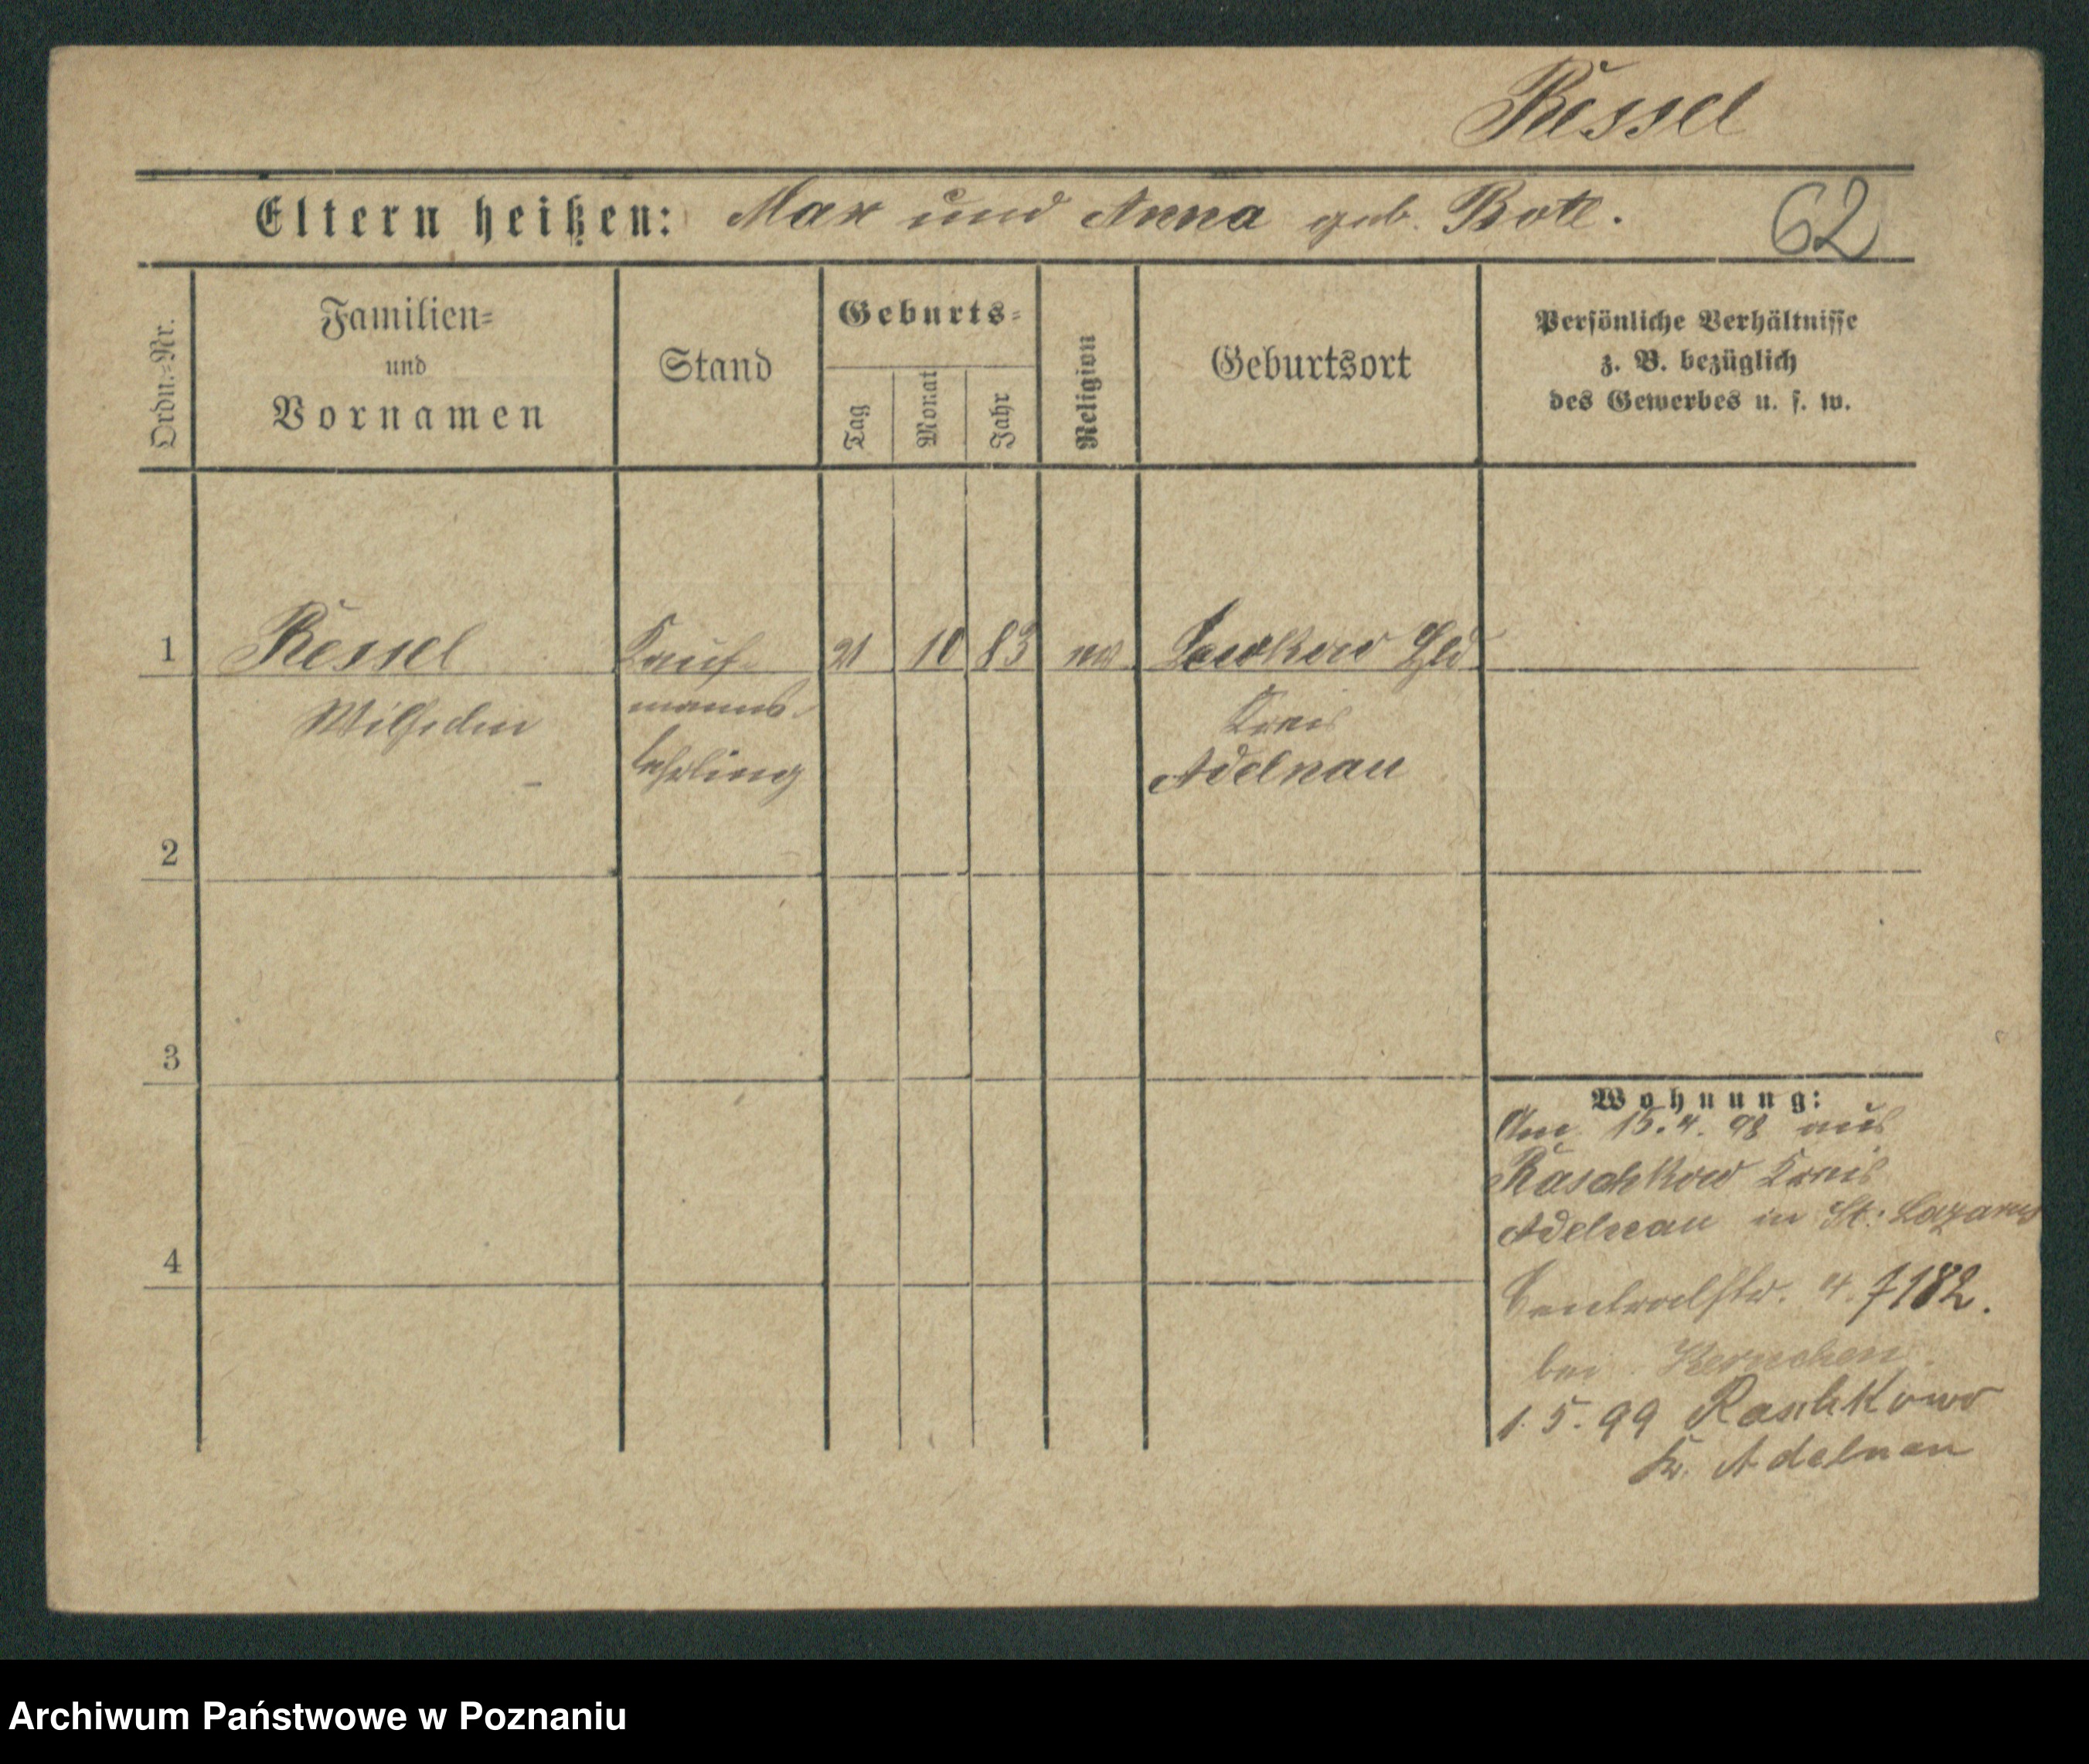 Kessel
Eltern heißen: Max und Anna geb. Bote.
62
Ordn.-Nr.
Familien-
und
Vornamen
Stand
Geburts-
Tag
Monat
Jahr
Religion
Geburtsort
Persönliche Verhältnisse
z. B. bezüglich
des Gewerbes u. s. w.
1 Kessel Kauf- 21 10 83
Wilhelm manns-
lehrling
Kreis
Adelnau
2
3
4
Wohnung:
Am 15.4.98 aus
Raschkow Kreis
Adelnau in St. Lazarus
Centralstr. 4. 7182.
bei
1.5.99 Raschkow
Kr. Adelnau
Archiwum Państwowe w Poznaniu